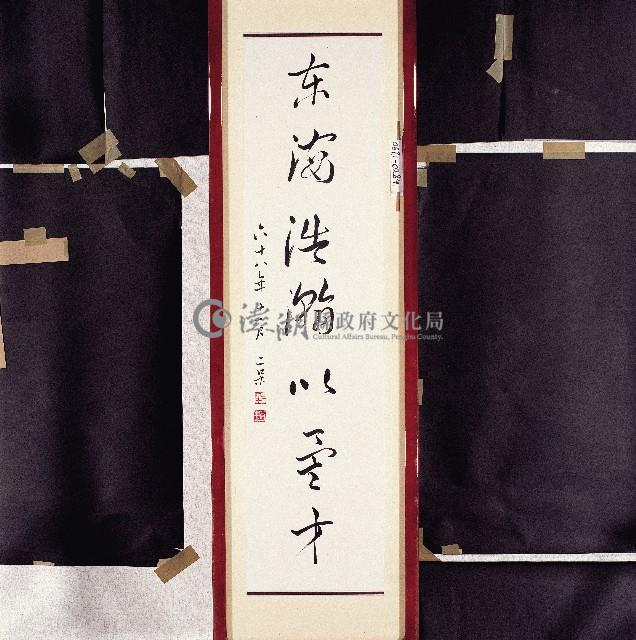 东海浩瀚以才
六十八年 月 二呆
澎湖縣政府文化局
Cultural Affairs Bureau, Penghu County.